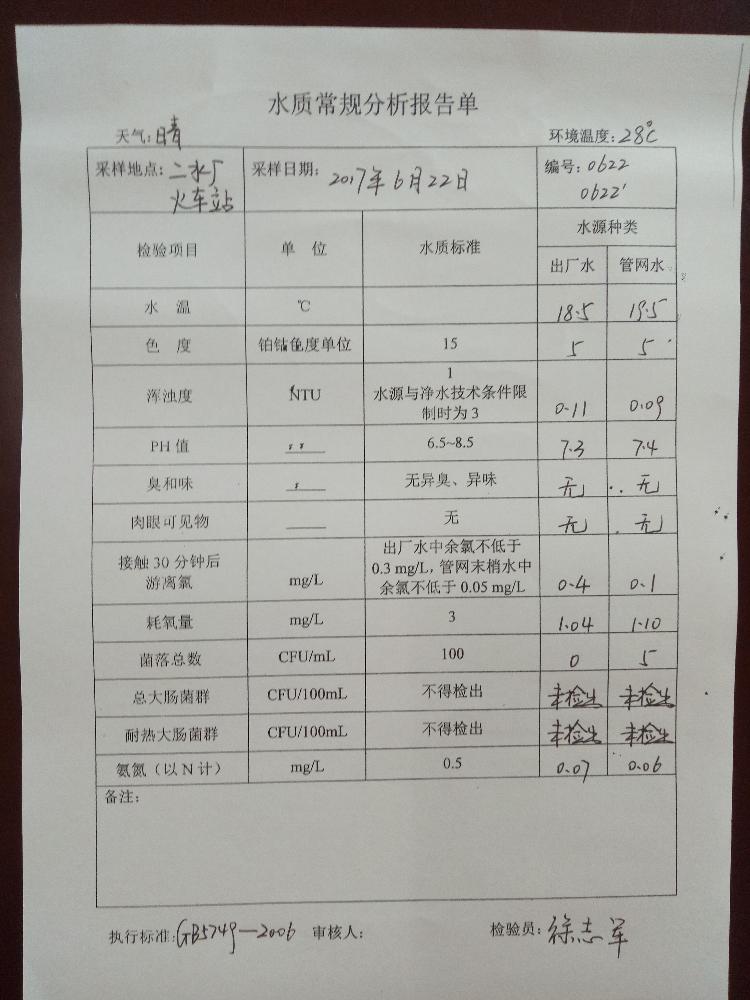 水质常规分析报告单
天气:晴 环境温度:28℃
采样地点:二水厂 采样日期:2017年6月22日 编号:0622
火车站 0622'
检验项目 单 位 水质标准 水源种类
出厂水 管网水
水 温 ℃ 18.5 19.5
色 度 铂钴色度单位 15 5 5
浑浊度 NTU 1
水源与净水技术条件限
制时为 3 0.11 0.09
PH 值 6.5~8.5 7.3 7.4
臭和味 无异臭、异味 无 无
肉眼可见物 无 无 无
接触 30 分钟后 出厂水中余氯不低于
游离氯 mg/L 0.3 mg/L, 管网末梢水中
余氯不低于 0.05 mg/L 0.4 0.1
耗氧量 mg/L 3 1.04 1.10
菌落总数 CFU/mL 100 0 5
总大肠菌群 CFU/100mL 不得检出 未检出 未检出
耐热大肠菌群 CFU/100mL 不得检出 未检出 未检出
氨氮(以 N 计) mg/L 0.5 0.07 0.06
备注:
执行标准:GB5749-2006 审核人: 检验员:徐志军